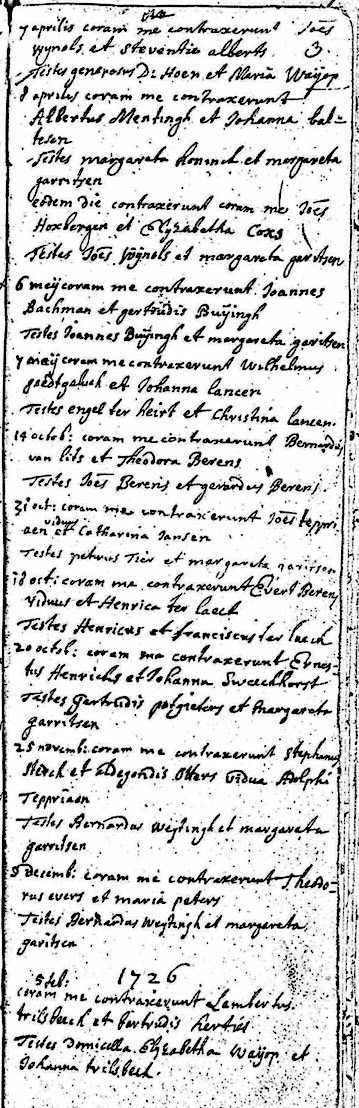 7 aprilis coram me contraxerunt Joës
Wynols et Steventie alberts 3.
Testes generosus D: Hoen et Maria Wayop
8 aprilis coram me contraxerunt
Albertus Mentingh et Johanna bal-
tesen
Testes margareta Koninck et margareta
garritsen
eodem die contraxerunt coram me Joës
Hoxbergen et Elyzabetha Coxs
Testes Joës Wynols et margareta garitsen
6 meij coram me contraxerunt Joannes
Bachman et gertrudis Buijingh
Testes Joannes Buijingh et margareta garitsen
7 maij coram me contraxerunt Wilhelmus
et Johanna lancen
Testes engel ter heirt et Christina lancen.
14 octob: coram me contraxerunt Bernardus
van lits et Theodora Berens
Testes Joës Berens et gerardus Berens.
oct: coram me contraxerunt Joës teppri
aen viduus et Catharina Jansen
Testes petrus Tier et margareta garitsen
18 oct: coram me contraxerunt Evert Berens
viduus et Henrica ter laeck
Testes Henricus et franciscus ter laeck
20 octob: coram me contraxerunt Ernes-
tus Henrichs et Johanna Swechhorst
Testes gertrudis potgieters et Margareta
garritsen
25 novemb: coram me contraxerunt Stephanus
Sterck et aldegondis Otters vidua Adolphi
Teppriaen
Testes Bernardus Weytingh et margareta
garritsen
5 decemb: coram me contraxerunt Theodo-
rus evers et maria peters
Testes Bernardus Weytingh et margareta
garitsen
1726
5 feb:
coram me contraxerunt Lambertus
trilsbeck et gertrudis herties
Testes domicella Elyzabetha Waijop et
Johanna trilsbeck.